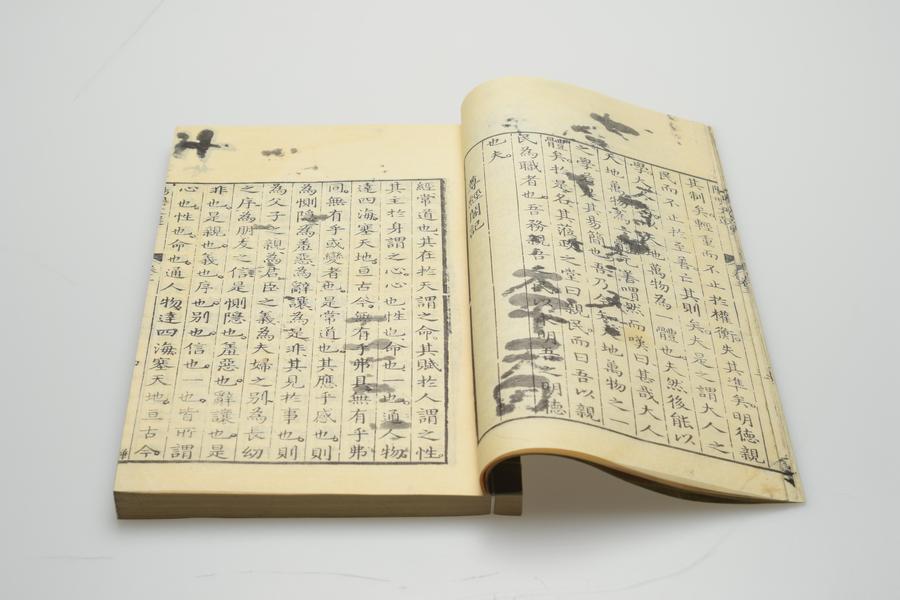 其制矣。輕重而不止於權衡失其準矣。明德親
民而不止於至善亡其則矣。夫是之謂大人之
學大天地萬物為體也。夫然後能以
天地萬物為善喟然而嘆曰甚哉大人
之學其易簡也。吾乃地萬物之一
體矣。於是名其蒞政之堂曰親民。而曰吾以親
民為職者也。吾務親吾以明吾明德
也夫。
尊經閣記
經常道也。其在於天謂之命。其賦於人謂之性
其主於身謂之心。心也性也。命也。一也。通人物。
達四海塞天地。亘古今。無有乎弗具。無有乎弗
同。無有乎或變者也。是常道也。其應乎感也。則
為惻隱。為羞惡。為辭讓。為是非。其見於事也。則
為父子之親。為君臣之義。為夫婦之別。為長幼
之序。為朋友之信。是惻隱也。羞惡也。辭讓也。是
非也。是親也。義也。序也。別也。信也。一也。皆所謂
心也。性也。命也。通人物達四海塞天地亘古今。